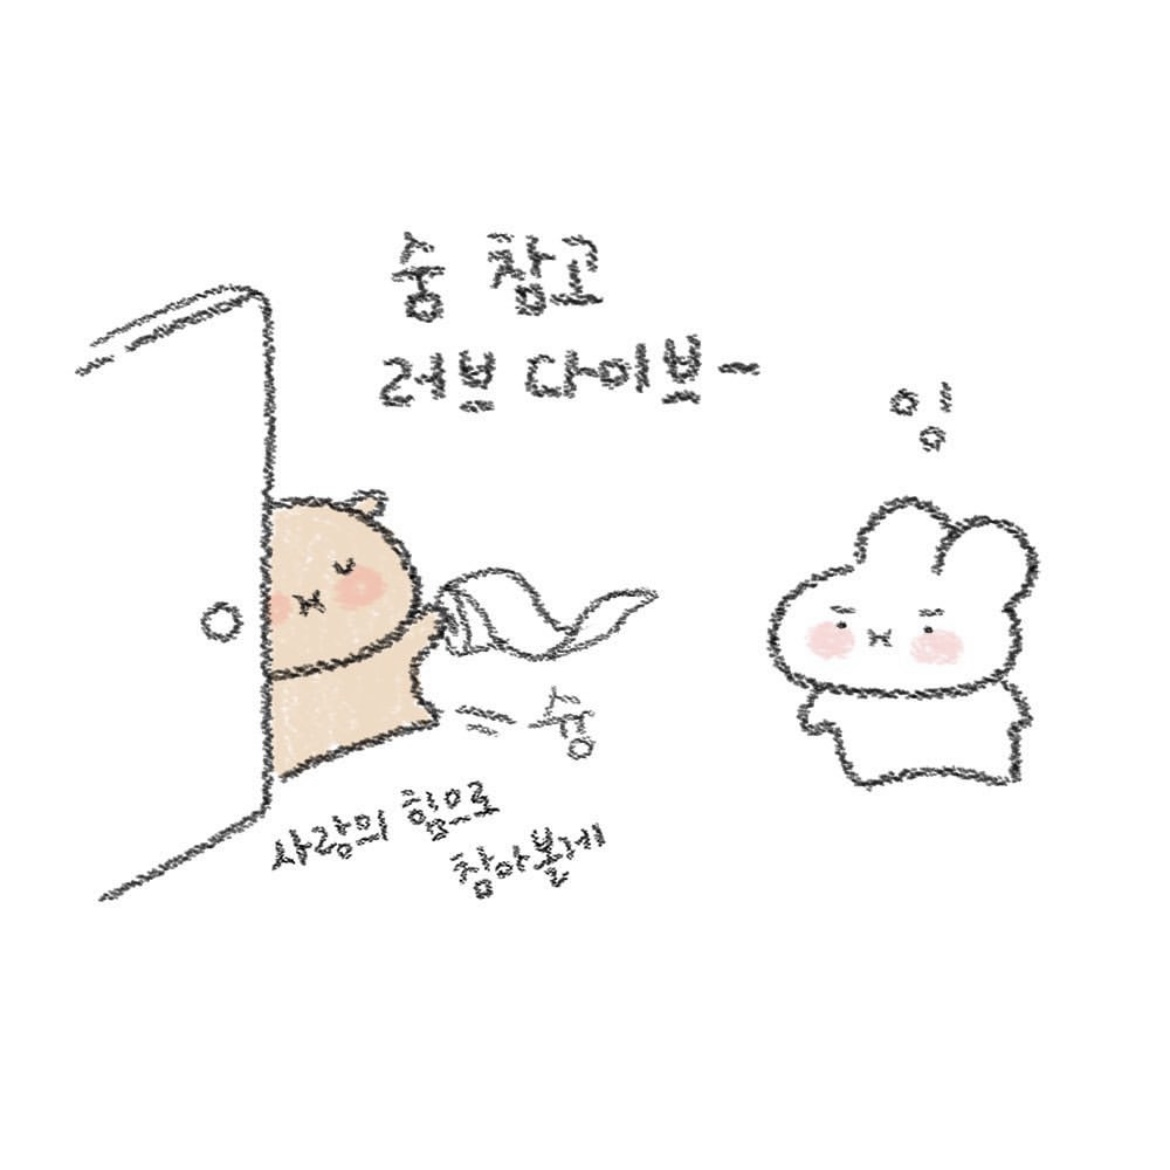 숭 참고
러브 다이브~
잉
슝
사랑의 힘으로
참아볼게